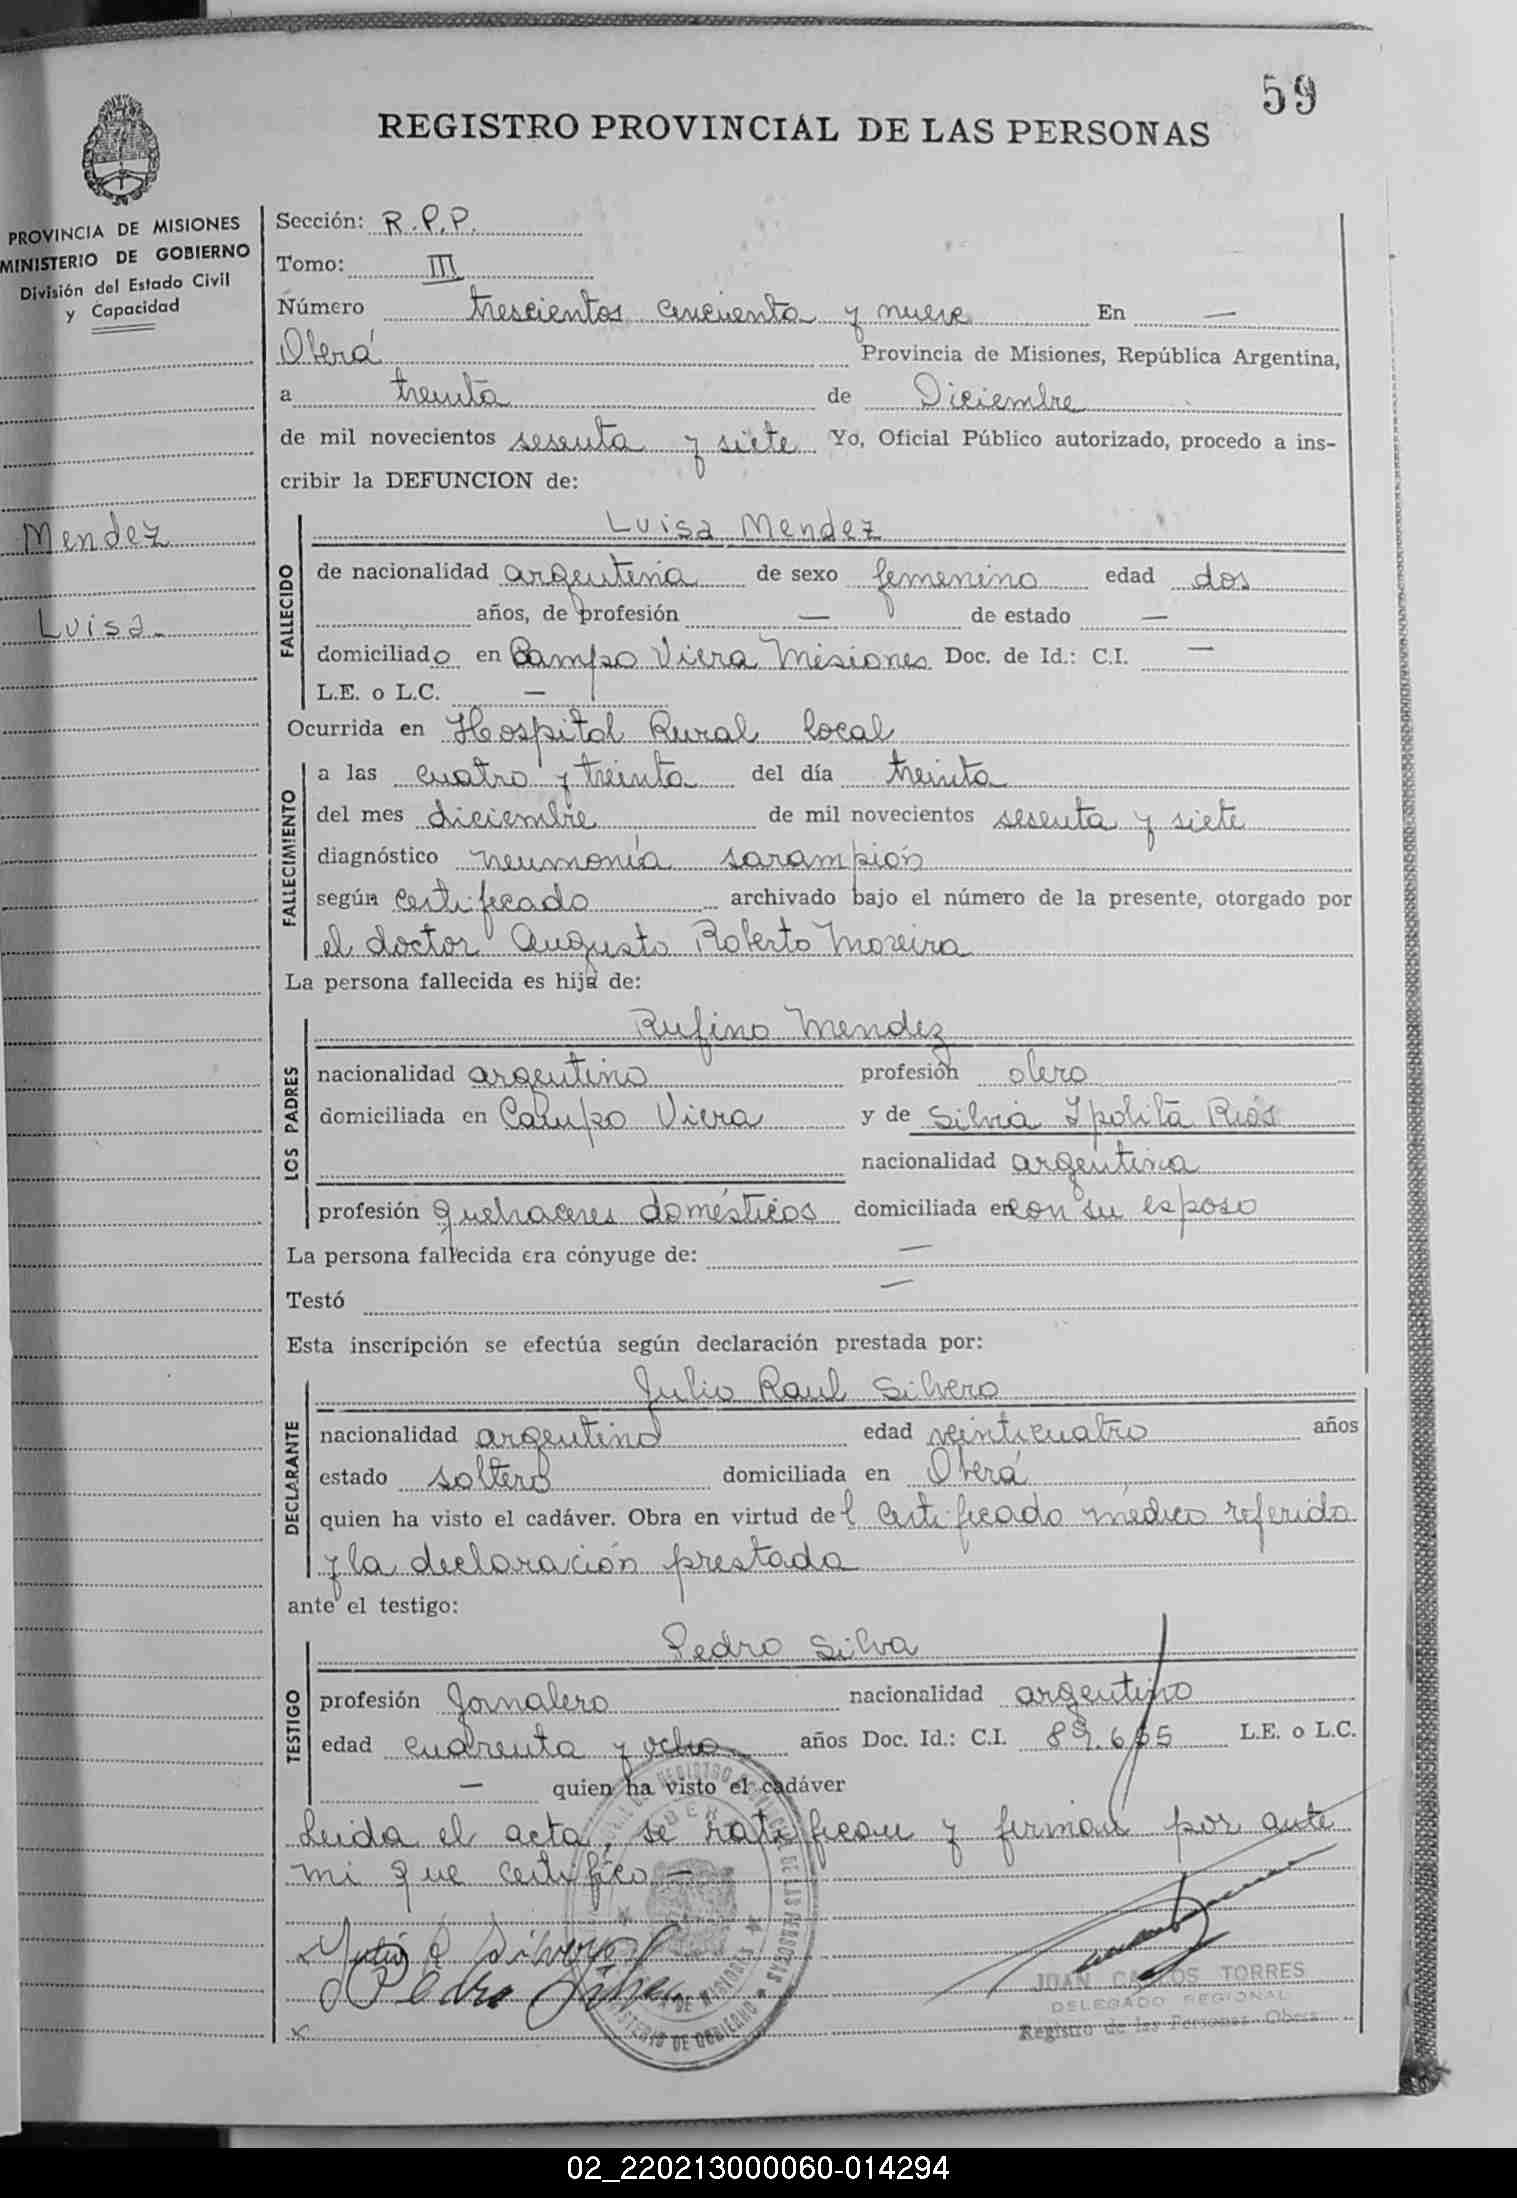 59
REGISTRO PROVINCIAL DE LAS PERSONAS
PROVINCIA DE MISIONES
MINISTERIO DE GOBIERNO
División del Estado Civil
y Capacidad
Mendez
Luisa
Sección: R.P.P.
Tomo: III
Número trescientos cincuenta y nueve En —
Oberá Provincia de Misiones, República Argentina,
a treinta de Diciembre
de mil novecientos sesenta y siete Yo, Oficial Público autorizado, procedo a ins-
cribir la DEFUNCION de:
Luisa Mendez
FALLECIDO
de nacionalidad argentina de sexo femenino edad dos
años, de profesión — de estado —
domiciliado en Campo Viera Misiones Doc. de Id.: C.I. —
L.E. o L.C. —
Ocurrida en Hospital Rural local
FALLECIMIENTO
a las cuatro y treinta del día treinta
del mes diciembre de mil novecientos sesenta y siete
diagnóstico neumonía sarampión
según certificado archivado bajo el número de la presente, otorgado por
el doctor Augusto Roberto Moreira
La persona fallecida es hija de:
Rufino Mendez
LOS PADRES
nacionalidad argentino profesión olero
domiciliada en Campo Viera y de Silvia Ipolita Rios
nacionalidad argentina
profesión quehaceres domésticos domiciliada en con su esposo
La persona fallecida era cónyuge de: —
Testó —
Esta inscripción se efectúa según declaración prestada por:
Julio Raul Silvero
DECLARANTE
nacionalidad argentino edad veinticuatro años
estado soltero domiciliada en Oberá
quien ha visto el cadáver. Obra en virtud del certificado médico referido
y la declaración prestada
ante el testigo:
Pedro Silva
TESTIGO
profesión Jornalero nacionalidad argentino
edad cuarenta y ocho años Doc. Id.: C.I. 89.665 L.E. o L.C.
— quien ha visto el cadáver
Leida el acta, se ratifican y firman por ante
mi que certifico —
Julio R Silvero
Pedro Silva
JUAN CARLOS TORRES
DELEGADO REGIONAL
Registro de las Personas Oberá
02_220213000060-014294